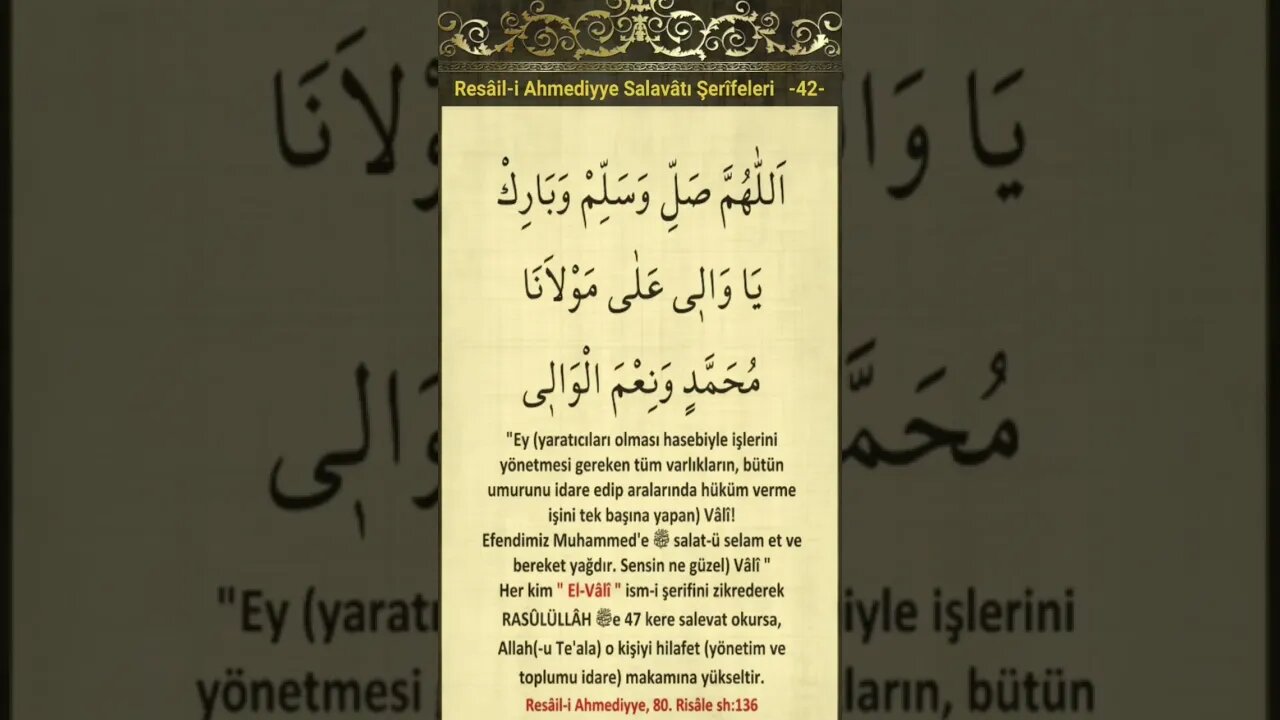 Resâil-i Ahmediyye Salavâtı Şerîfeleri -42-
اَللّٰهُمَّ صَلِّ وَسَلِّمْ وَبَارِكْ
يَا وَالٖى عَلٰى مَوْلاَنَا
مُحَمَّدٍ وَنِعْمَ الْوَالٖى
"Ey (yaratıcıları olması hasebiyle işlerini
yönetmesi gereken tüm varlıkların, bütün
umurunu idare edip aralarında hüküm verme
işini tek başına yapan) Vâlî!
Efendimiz Muhammed'e ﷺ salat-ü selam et ve
bereket yağdır. Sensin ne güzel) Vâlî "
Her kim " El-Vâlî " ism-i şerifini zikrederek
RASÛLÜLLÂH ﷺe 47 kere salevat okursa,
Allah(-u Te'ala) o kişiyi hilafet (yönetim ve
toplumu idare) makamına yükseltir.
Resâil-i Ahmediyye, 80. Risâle sh:136